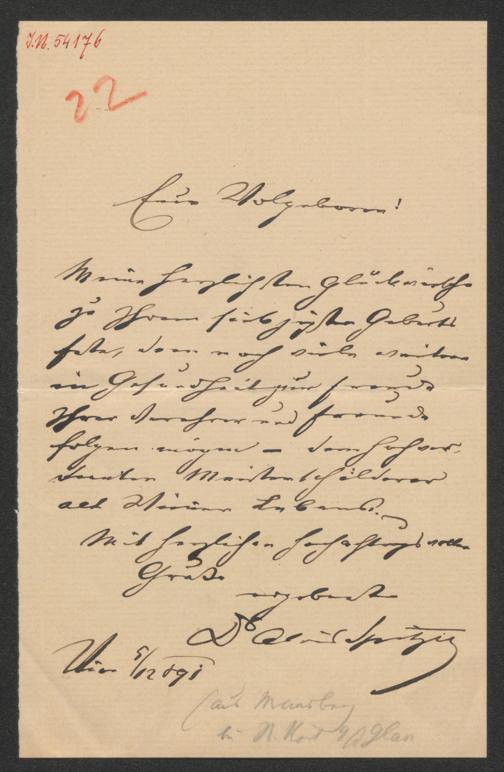 I.N. 54176
22
Euer Wolgeboren!
Meine herzlichsten Glückwünsche
zu Ihrem siebzigsten Geburts
feste, dem noch viele weitere
in Gesundheit zur Freude
Ihrer Verehrer und Freunde
folgen mögen – dem hochver-
dienten Meisterschilderer
alt Wiener Lebens.
Mit herzlichen hochachtungsvollen
Grüße
ergebenster
Dr Alois Spitzer
Wien 5/12 891
(aus
bei St. Veit a/d Glan